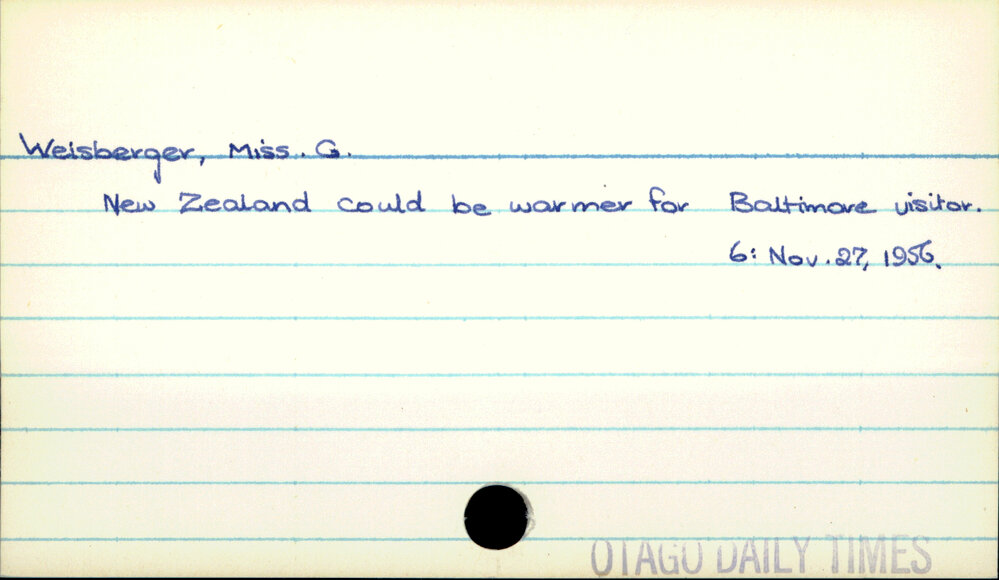 Weisberger, Miss. G.
New Zealand could be warmer for Baltimore visitor.
6: Nov. 27, 1956.
OTAGO DAILY TIMES